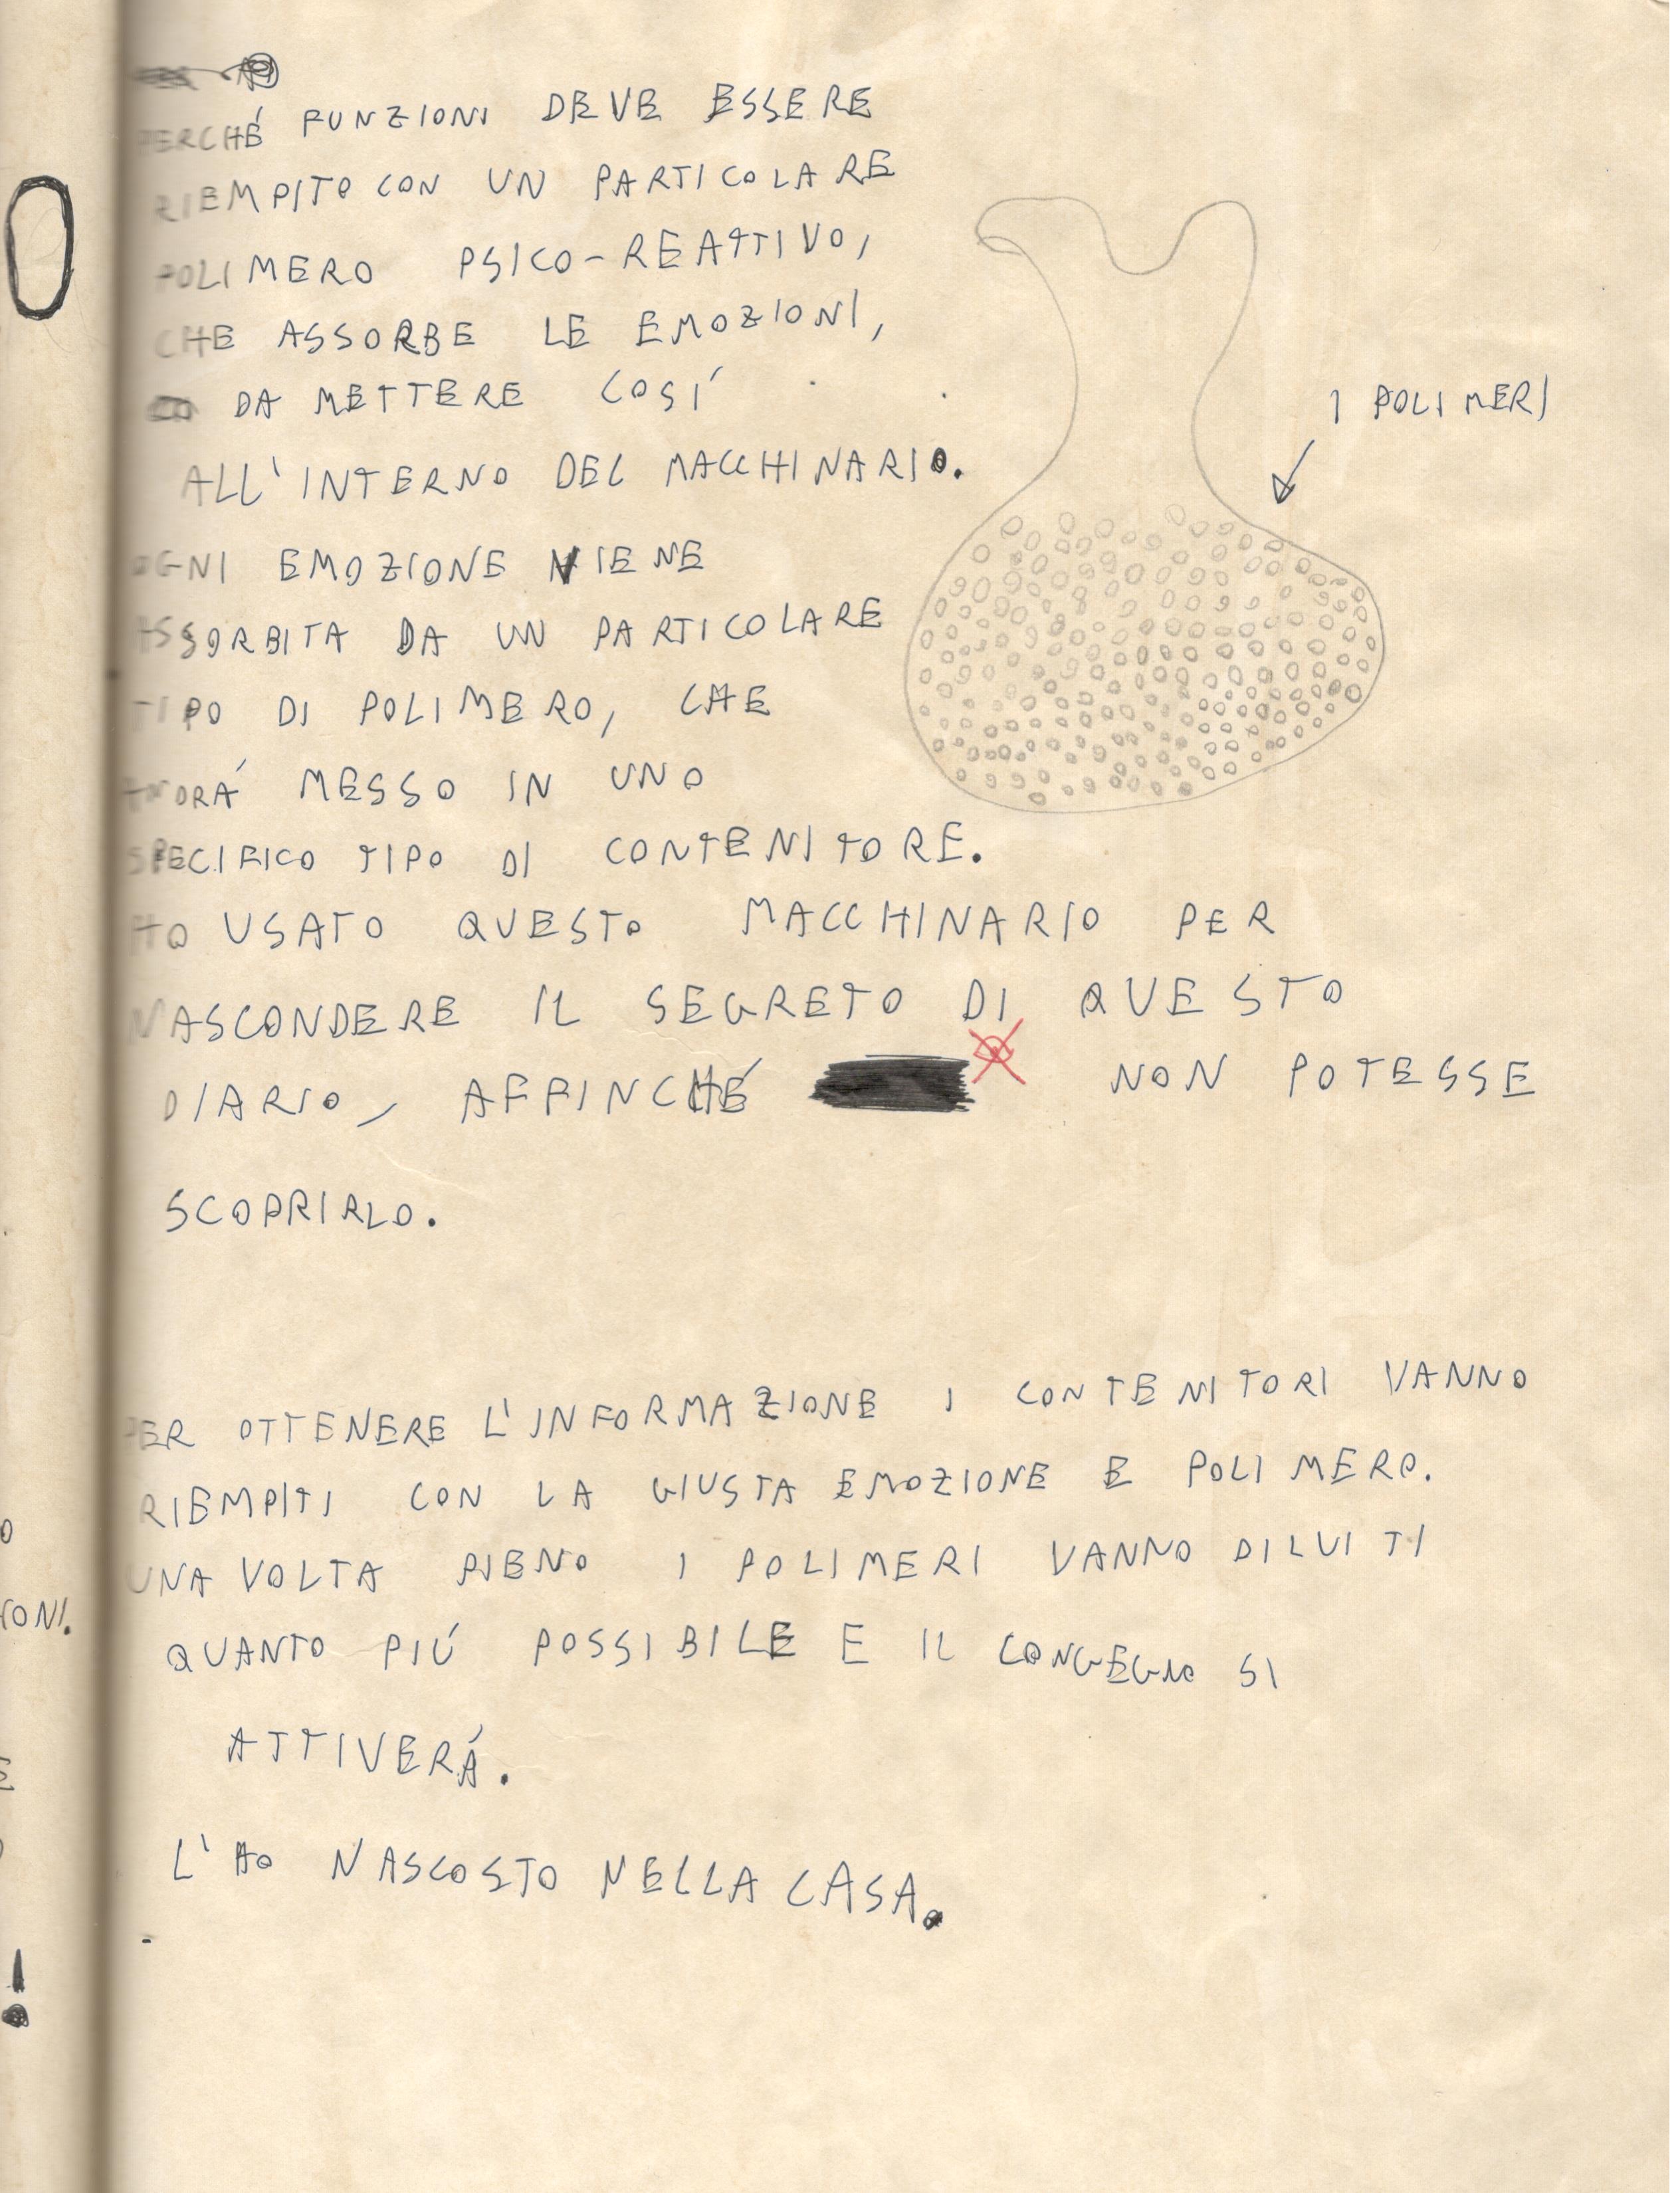 PERCHÉ FUNZIONI DEVE ESSERE
RIEMPITO CON UN PARTICOLARE
POLIMERO PSICO-REATTIVO,
CHE ASSORBE LE EMOZIONI,
DA METTERE COSÍ
I POLIMERI
ALL'INTERNO DEL MACCHINARIO.
OGNI EMOZIONE VIENE
ASSORBITA DA UN PARTICOLARE
TIPO DI POLIMERO, CHE
MESSO IN UNO
SPECIFICO TIPO DI CONTENITORE.
HO USATO QUESTO MACCHINARIO PER
NASCONDERE IL SEGRETO DI QUESTO
DIARIO, AFFINCHÉ NON POTESSE
SCOPRIRLO.
PER OTTENERE L'INFORMAZIONE I CONTENITORI VANNO
RIEMPITI CON LA GIUSTA EMOZIONE E POLIMERO.
UNA VOLTA PIENO I POLIMERI VANNO DILUITI
QUANTO PIÚ POSSIBILE E IL CONGEGNO SI
ATTIVERÁ.
L'HO NASCOSTO NELLA CASA.